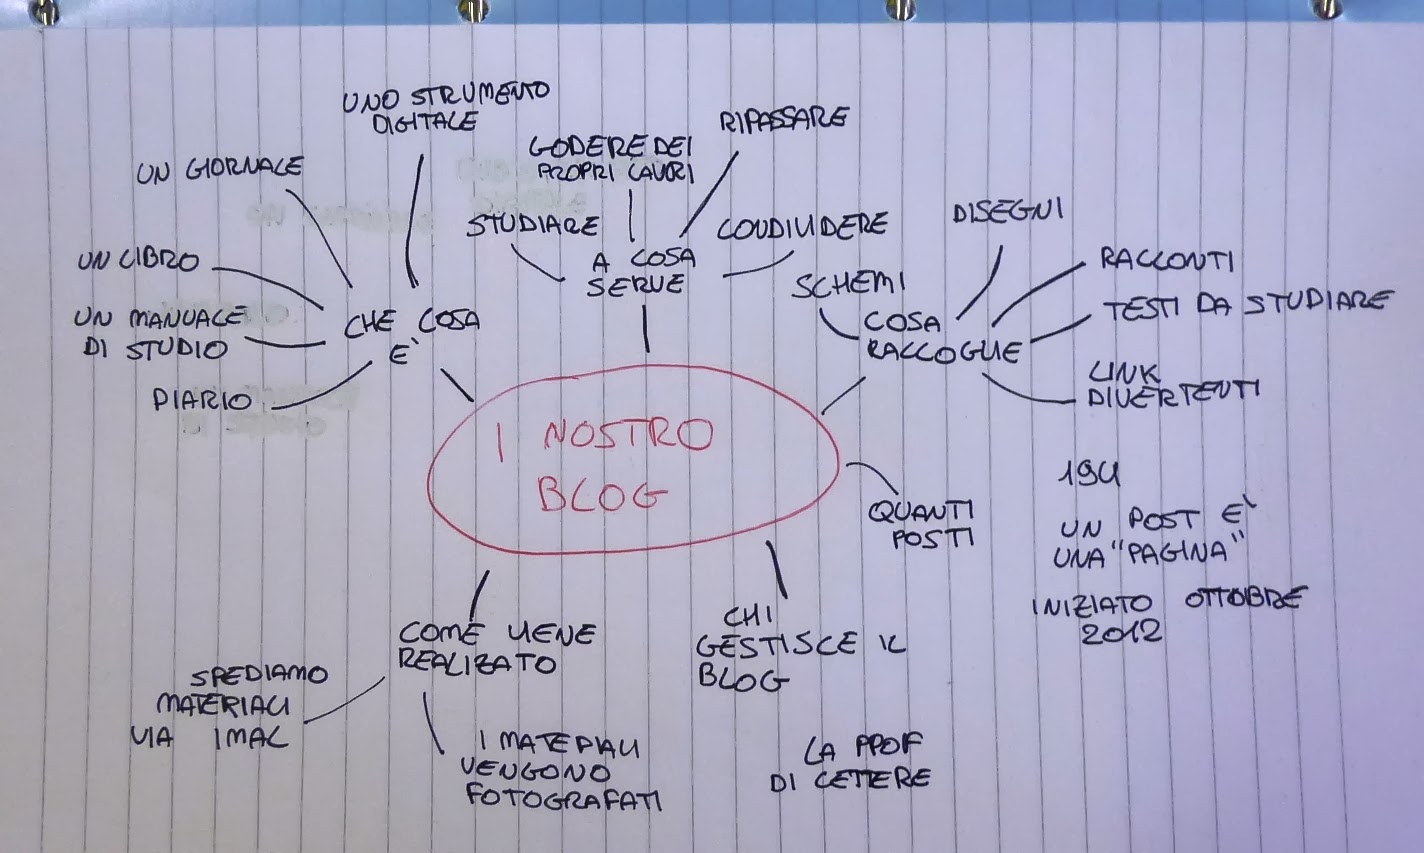 UNO STRUMENTO
DIGITALE
UN GIORNALE
UN LIBRO
UN MANUALE
DI STUDIO
DIARIO
CHE COSA
E'
GODERE DEI
PROPRI LAVORI
RIPASSARE
STUDIARE
CONDIVIDERE
A COSA
SERVE
DISEGNI
SCHEMI
RACCONTI
TESTI DA STUDIARE
LINK
DIVERTENTI
COSA
RACCOGLIE
I NOSTRO
BLOG
QUANTI
POSTI
194
UN POST E'
UNA "PAGINA"
INIZIATO OTTOBRE
2012
COME VIENE
REALIZATO
SPEDIAMO
MATERIALI
VIA IMAL
I MATERIALI
VENGONO
FOTOGRAFATI
CHI
GESTISCE IL
BLOG
LA PROF
DI LETTERE